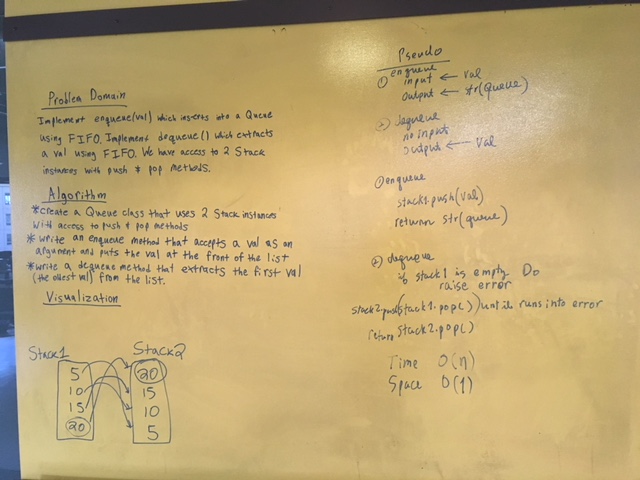 Problem Domain
Implement enqueue(val) which inserts into a Queue
using FIFO. Implement dequeue() which extracts
a val using FIFO. We have access to 2 Stack
instances with push & pop methods.
Algorithm
*create a Queue class that uses 2 Stack instances
with access to push & pop methods
* write an enqueue method that accepts a val as an
argument and puts the val at the front of the list
*write a dequeue method that extracts the first val
(the oldest val) from the list.
Visualization
Stack1
5
10
15
20
Stack2
20
15
10
5
Pseudo
① enqueue
input ← val
output ← str(queue)
② dequeue
no inputs
output ← val
① enqueue
stack1.push(val)
return str(queue)
② dequeue
if stack1 is empty Do
raise error
stack2.push(stack1.pop()) until runs into error
return stack2.pop()
Time O(n)
Space O(1)